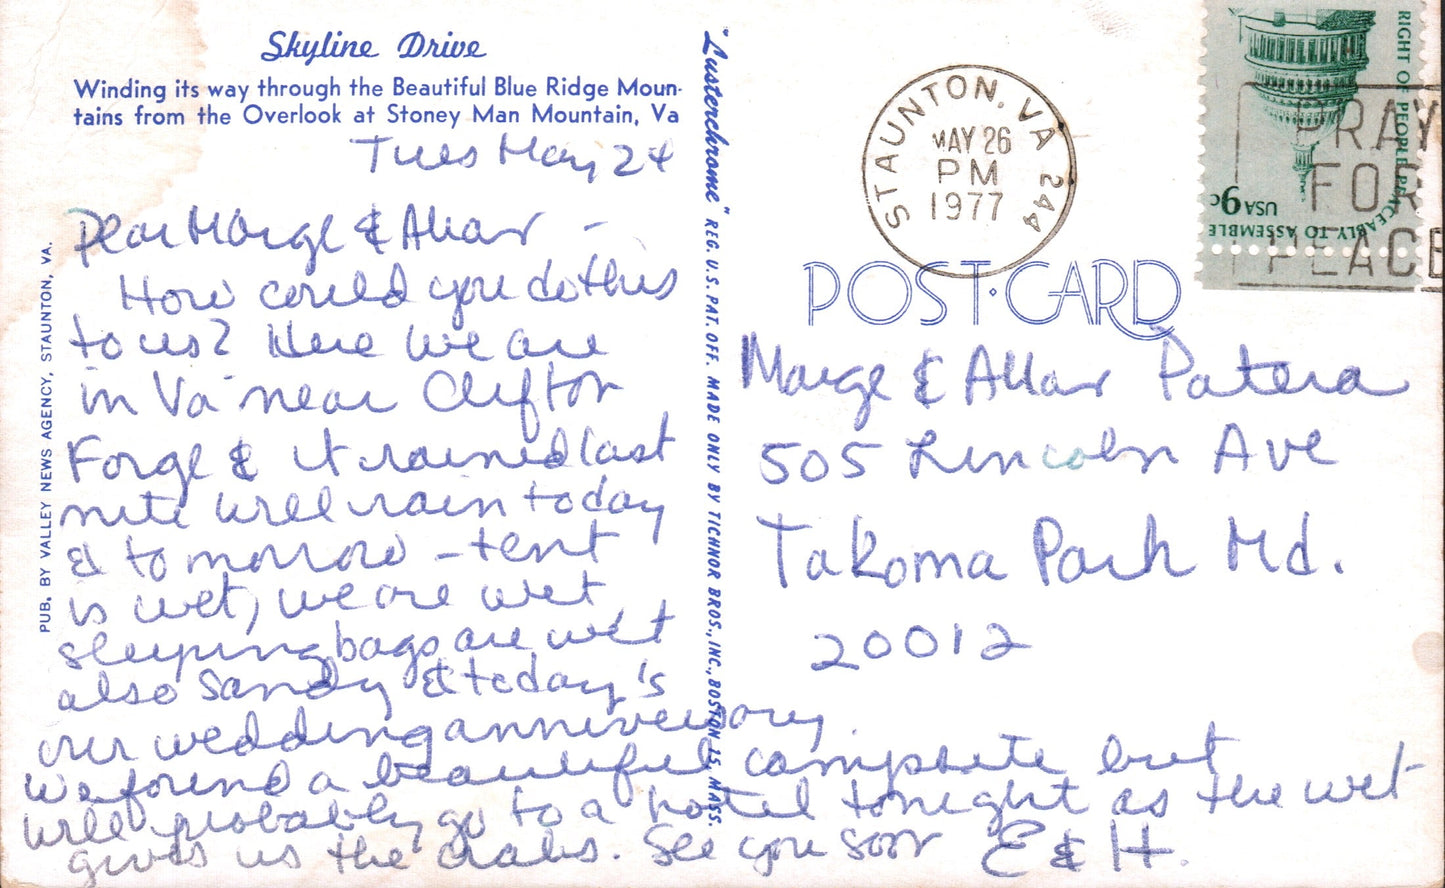 Skyline Drive
Winding its way through the Beautiful Blue Ridge Moun-
tains from the Overlook at Stoney Man Mountain, Va
Tues May 24
Dear Marge & Allan –
How could you do this
to us? Here we are
in Va near Clifton
Forge & it rained last
nite will rain today
& tomorrow – tent
is wet, we are wet
sleeping bags are wet
also Sandy & today's
our wedding anniversary.
We found a beautiful campsite but
will probably go to a hotel tonight as the wet
gives us the crabs. See you soon E & H.
PUB. BY VALLEY NEWS AGENCY, STAUNTON, VA.
"Lusterchrome" REG. U.S. PAT. OFF. MADE ONLY BY TICHNOR BROS., INC., BOSTON 15, MASS.
STAUNTON, VA 244
MAY 26
PM
1977
RIGHT OF PEOPLE PEACEABLY TO ASSEMBLE
USA 9c
PRAY
FOR
PEACE
POST·CARD
Marge & Allan Patera
505 Lincoln Ave
Takoma Park Md.
20012